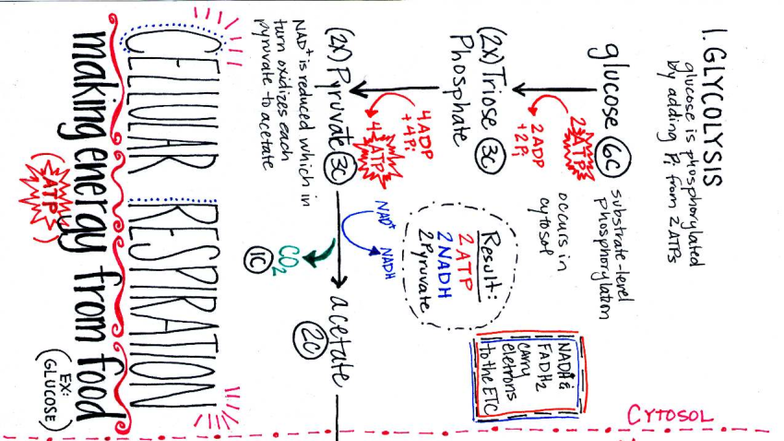 CELLULAR RESPIRATION
making energy from food
ATP
(EX:
GLUCOSE)
1. GLYCOLYSIS
glucose is phosphorylated
by adding Pi from 2 ATPs
glucose 6C
2 ATP
2 ADP
+ 2 Pi
substrate-level
phosphorylation
occurs in
cytosol
(2x) Triose 3C
Phosphate
4 ADP
+ 4 Pi
4 ATP
(2x) Pyruvate 3C
NAD+ is reduced which in
turn oxidizes each
pyruvate to acetate
NAD+
NADH
CO2
1C
acetate
2C
Result:
2 ATP
2 NADH
2 Pyruvate
NADH &
FADH2
carry
eletrons
to the ETC
CYTOSOL